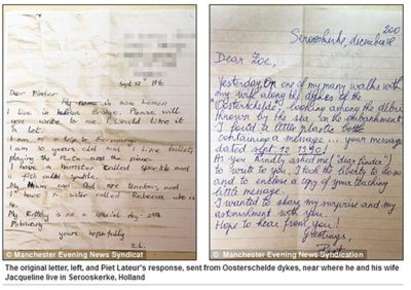 Sept 12th 1990
Dear Finder
My name is Zoe Lemon
I live in
write to me. I would like it
a lot.
I am 10 years old and I like ballet,
playing the flute and the piano.
I have a hamster called Sparkle and
a fish called Speckle.
My Birthday is on a special day: 29th
February
yours hopefully
Z.L.
© Manchester Evening News Syndicat
200
Serooskerke, december
Dear Zoe,
Yesterday on one of my many walks with
my wife along the dykes of the
Oosterschelde looking among the debris
thrown by the sea on the embankment
I found a little plastic bottle
containing a message... your message
dated sept. 12 1990!
As you kindly asked me ("dear finder")
to write to you, I took the liberty to do so
and to enclose a copy of your touching
little message.
I wanted to share my surprise and my
astonishment with you.
Hope to hear from you!
Greetings,
Piet
© Manchester Evening News Syndication
The original letter, left, and Piet Lateur's response, sent from Oosterschelde dykes, near where he and his wife
Jacqueline live in Serooskerke, Holland